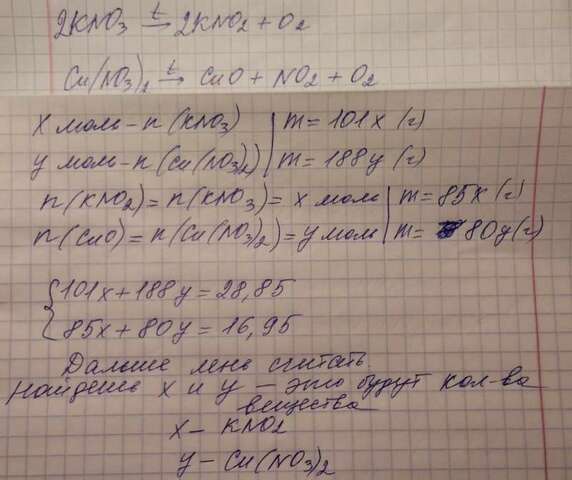 2KNO₃ →t 2KNO₂ + O₂
Cu(NO₃)₂ →t CuO + NO₂ + O₂
X моль - n (KNO₃) | m = 101x (г)
y моль - n (Cu(NO₃)₂) | m = 188y (г)
n(KNO₂) = n(KNO₃) = x моль | m = 85x (г)
n(CuO) = n(Cu(NO₃)₂) = y моль | m = 80y (г)
{101x + 188y = 28,85
85x + 80y = 16,95
Дальше лень считать
Найдешь x и y - это будут кол-ва
вещества
x - KNO2
y - Cu(NO₃)₂